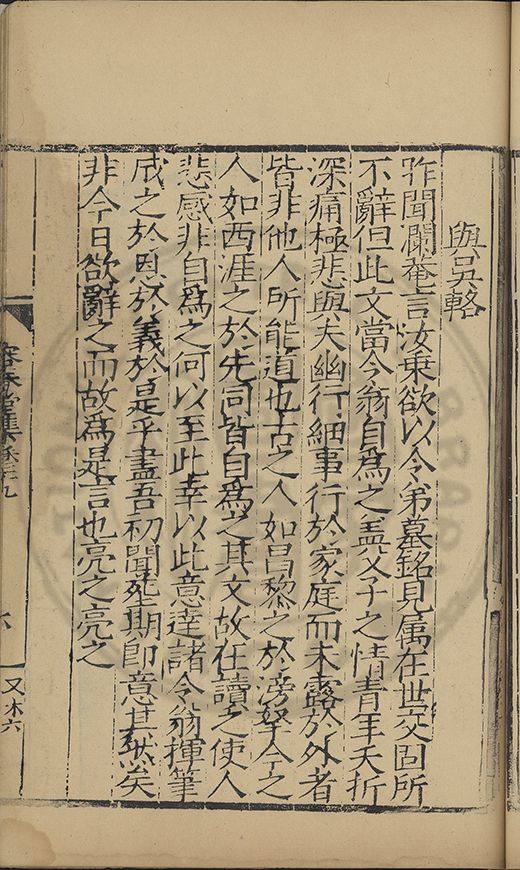 與吳輅
昨聞瀾菴言汝乗欲以令弟墓銘見属在世交固所
不辭但此文當令翁自爲之盖父子之情青年夭折
深痛極悲與夫幽行細事行於家庭而未露於外者
皆非他人所能道也古之人如昌黎之於滂孥今之
人如西涯之於先同皆自爲之其文故在讀之使人
悲感非自爲之何以至此幸以此意達諸令翁揮筆
成之於恩於義於是乎盡吾初聞塟期即意其然矣
非今日欲辭之而故爲是言也亮之亮之
容春堂集
九
六
又木六